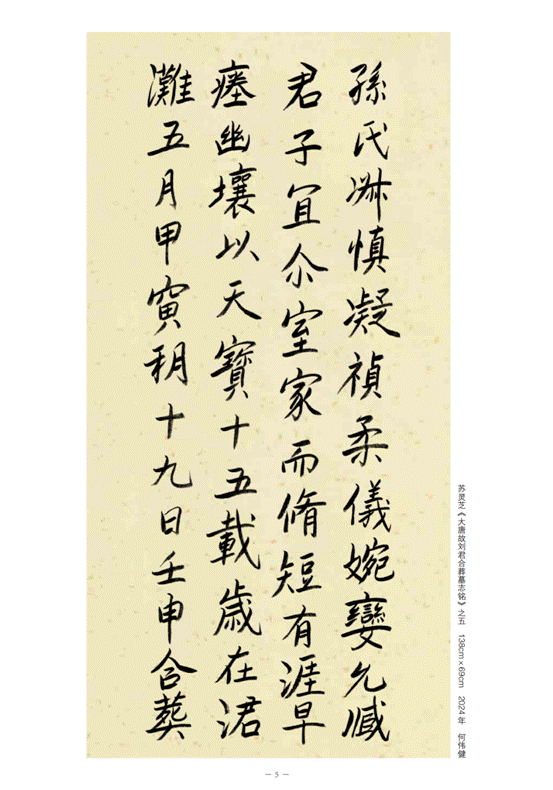 孫氏淋慎凝禎柔儀婉孌允臧
君子宜尒室家而脩短有涯早
瘞幽壤以天寶十五載歲在涒
灘五月甲寅朔十九日壬申合葬
苏灵芝《大唐故刘君合葬墓志铭》之五 138cm×69cm 2024年 何伟健
— 5 —